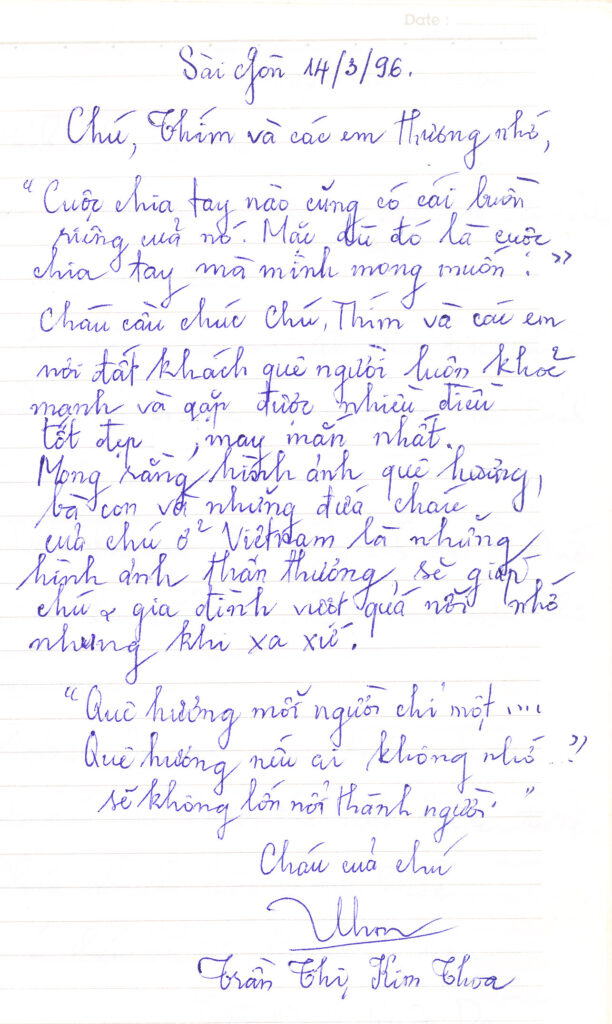 Date :
Sài Gòn 14/3/96.
Chú, Thím và các em thương nhớ,
“Cuộc chia tay nào cũng có cái buồn
riêng của nó. Mặc dù đó là cuộc
chia tay mà mình mong muốn.”
Cháu cầu chúc Chú, Thím và các em
nơi đất khách quê người luôn khoẻ
mạnh và gặp được nhiều điều
tốt đẹp, may mắn nhất.
Mong rằng hình ảnh quê hương,
bà con và những đứa cháu
của chú ở Việtnam là những
hình ảnh thân thương, sẽ giúp
chú & gia đình vượt quá nỗi nhớ
nhung khi xa xứ.
“Quê hương mỗi người chỉ một ....
Quê hương nếu ai không nhớ ..?
sẽ không lớn nổi thành người.”
Cháu của chú
Trần Thị Kim Thoa